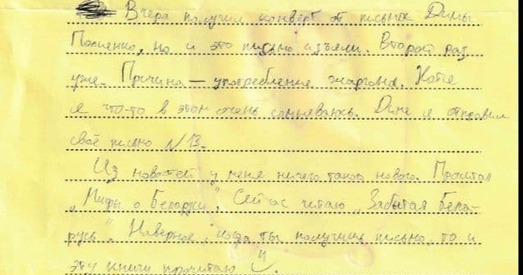 Вчера получил конверт от письма Димы
но и это письмо изъяли. Второй раз
уже. Причина — употребление жаргона. Хотя
я что-то в этом очень сомневаюсь. Диме я отправил
своё письмо №13.
Из новостей у меня ничего такого нового. Прочитал
"Мифы о Беларуси". Сейчас читаю "Забытая Бела-
русь". Наверное, когда ты получишь письмо, то и
эту книгу прочитаю